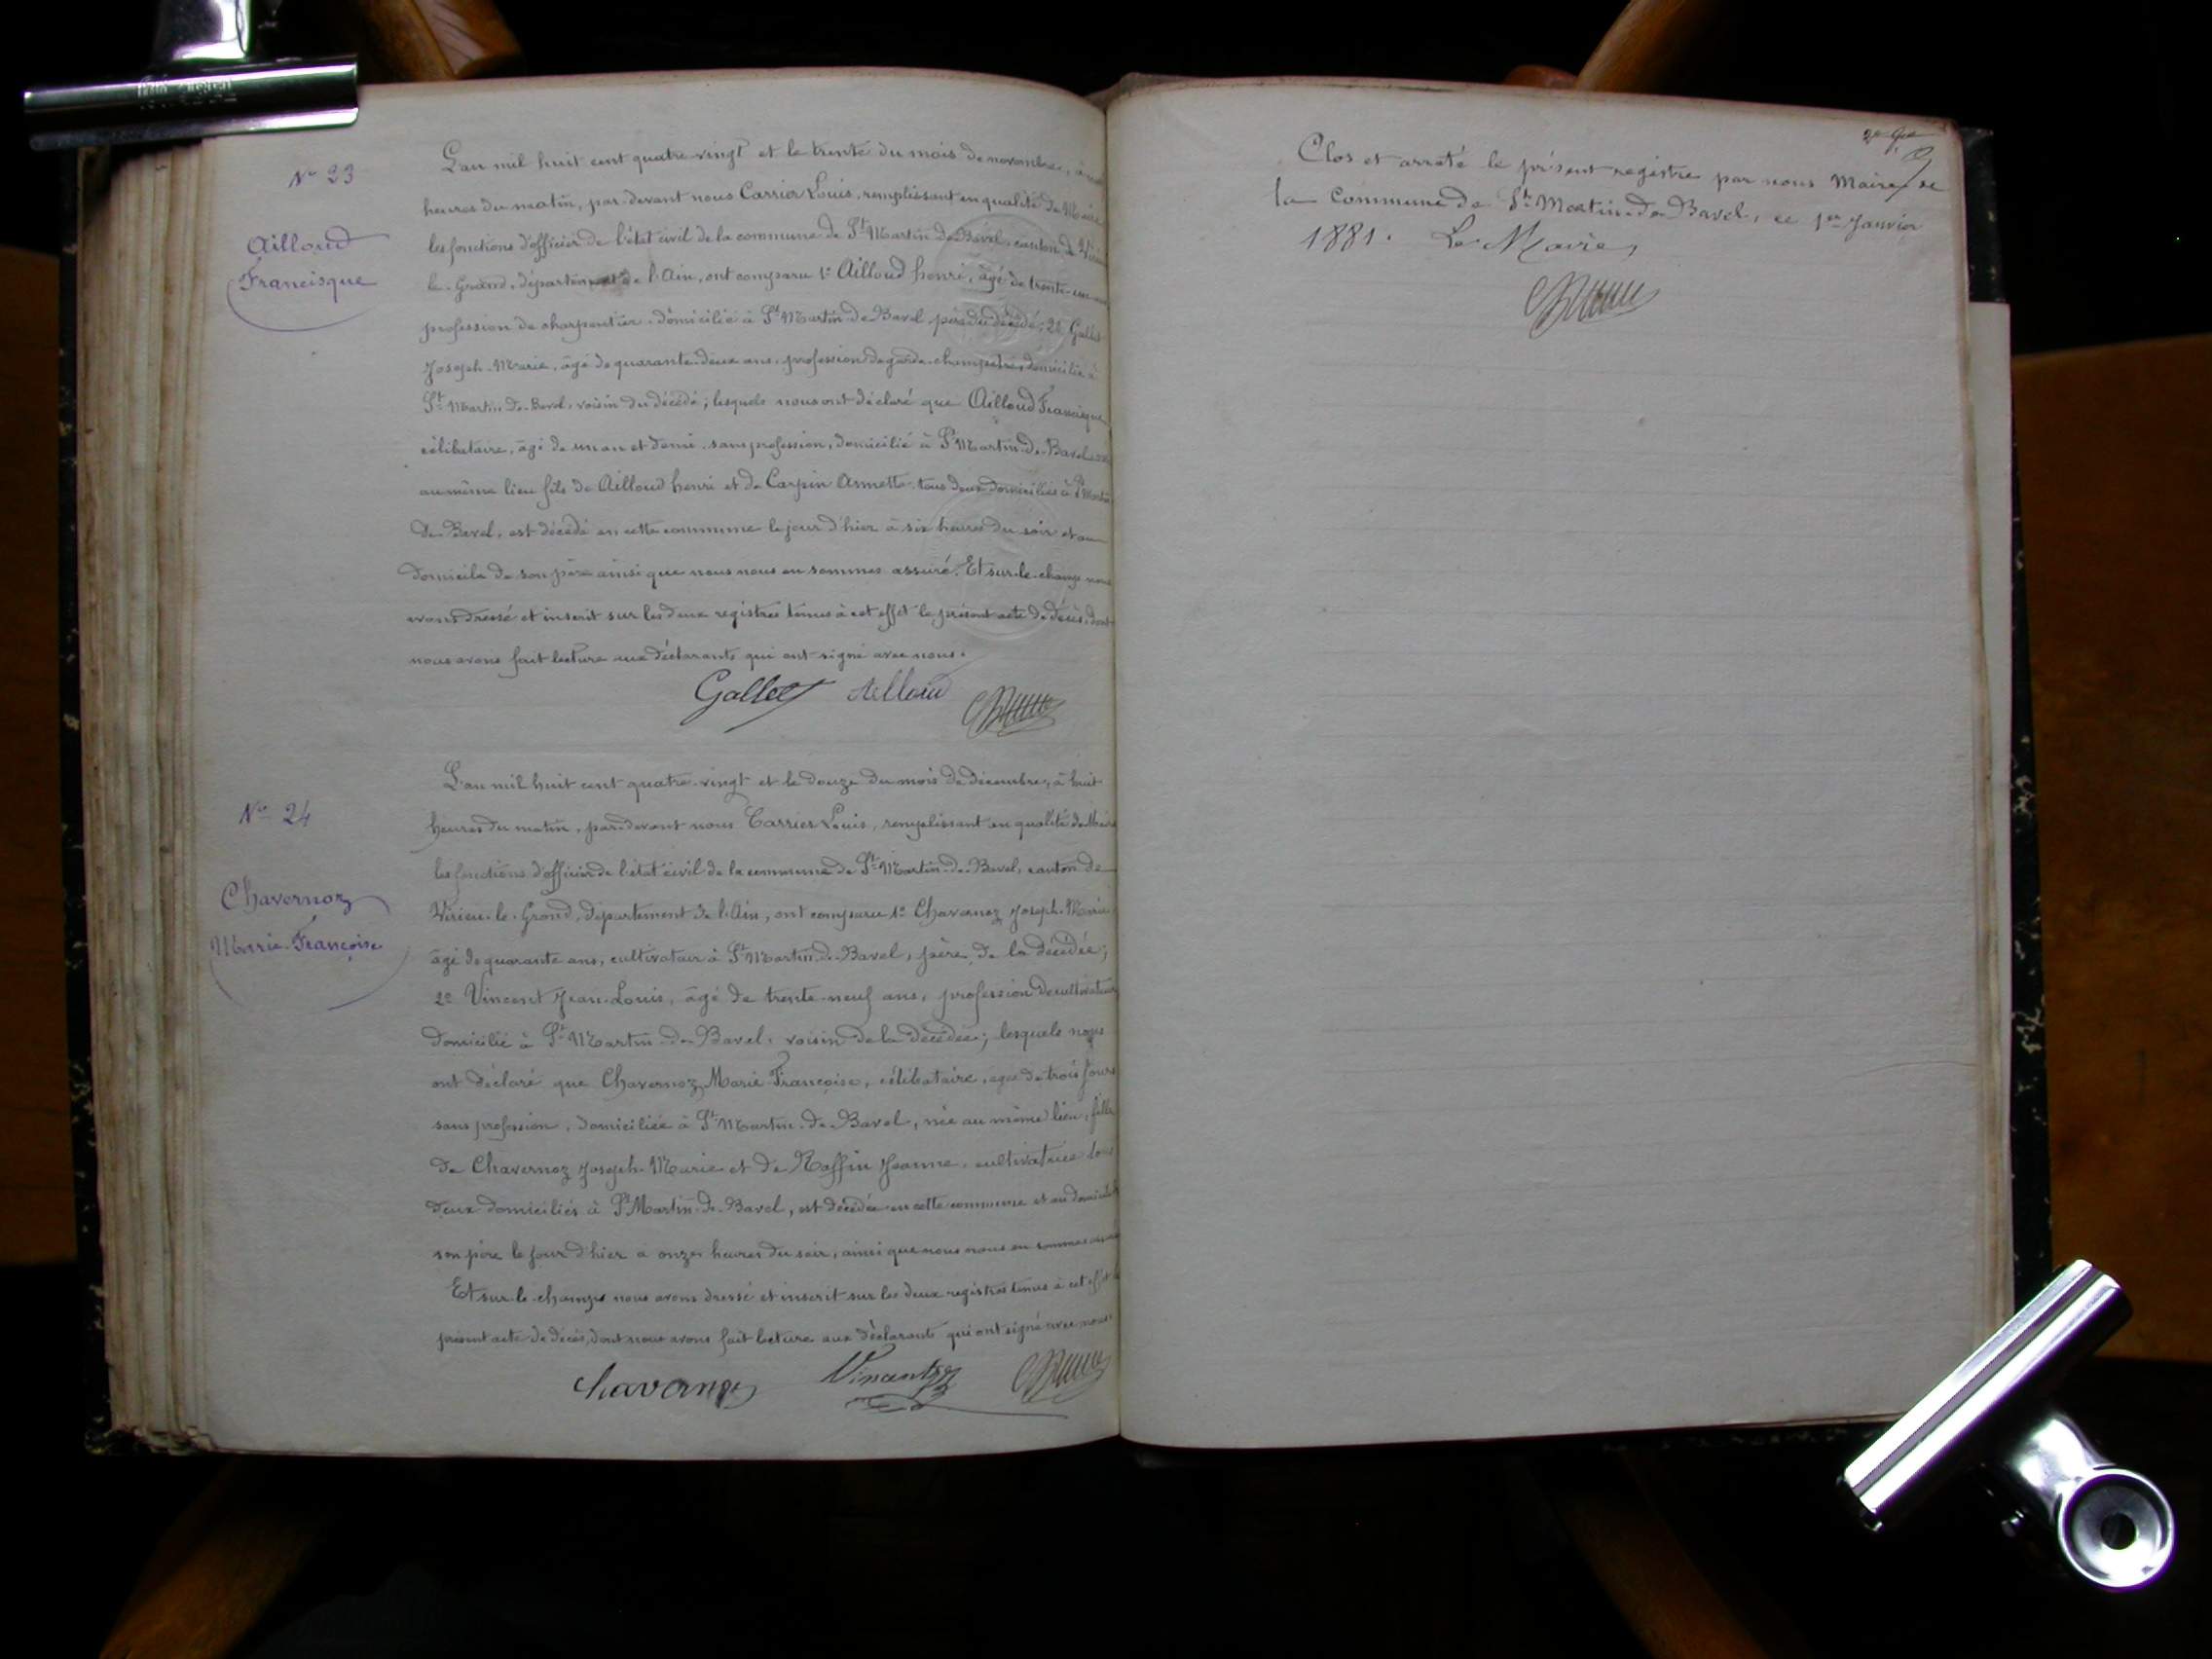 N° 23
Ailloud
Francisque
L'an mil huit cent quatre-vingt et le trente du mois de novembre, à
heures du matin, par-devant nous Carrier Louis, remplissant en qualité de Maire
les fonctions d'officier de l'état civil de la commune de St Martin-de-Bavel, canton de Virieu
le-Grand, département de l'Ain, ont comparu 1° Ailloud henri, âgé de trente-un ans
profession de charpentier, domicilié à St Martin-de-Bavel, père du décédé; 2° Gallet
Joseph-Marie, âgé de quarante-deux ans, profession de garde-champêtre, domicilié à
St Martin-de-Bavel, voisin du décédé; lesquels nous ont déclaré que Ailloud Francisque
célibataire, âgé de un an et demi, sans profession, domicilié à St Martin-de-Bavel, né
au même lieu fils de Ailloud henri et de Carpin Annette, tous deux domiciliés à St Martin
de-Bavel, est décédé en cette commune le jour d'hier à six heures du soir et au
domicile de son père ainsi que nous nous en sommes assuré. Et sur-le-champ nous
avons dressé et inscrit sur les deux registres tenus à cet effet le présent acte de décès, dont
nous avons fait lecture aux déclarants qui ont signé avec nous.
Gallet Ailloud
N° 24
Chavernoz
Marie-Françoise
L'an mil huit cent quatre-vingt et le douze du mois de décembre, à huit
heures du matin, par-devant nous Carrier Louis, remplissant en qualité de Maire
les fonctions d'officier de l'état civil de la commune de St Martin-de-Bavel, canton de
Virieu-le-Grand, département de l'Ain, ont comparu 1° Chavernoz Joseph-Marie
âgé de quarante ans, cultivateur à St Martin-de-Bavel, père de la décédée;
2° Vincent Jean-Louis, âgé de trente-neuf ans, profession de cultivateur
domicilié à St Martin-de-Bavel, voisin de la décédée; lesquels nous
ont déclaré que Chavernoz Marie-Françoise, célibataire, agée de trois jours
sans profession, domiciliée à St Martin-de-Bavel, née au même lieu, fille
de Chavernoz Joseph-Marie et de Raffin Jeanne, cultivatrice tous
deux domiciliés à St Martin-de-Bavel, est décédée en cette commune et au domicile
son père le jour d'hier à onze heures du soir, ainsi que nous nous en sommes assuré
Et sur-le-champ nous avons dressé et inscrit sur les deux registres tenus à cet effet le
présent acte de décès, dont nous avons fait lecture aux déclarants qui ont signé avec nous.
Chavernoz Vincent
Clos et arrêté le présent registre par nous Maire de
la Commune de St Martin-de-Bavel, ce 1er Janvier
1881. Le Maire,